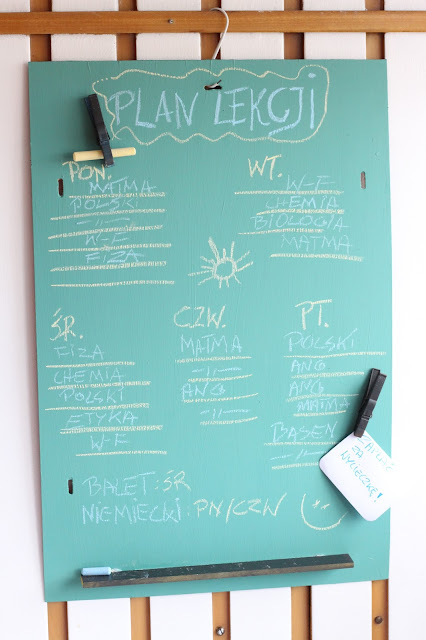 PLAN LEKCJI
PON.
MATMA
POLSKI
-||-
W-F
FIZA
WT.
W-F
CHEMIA
BIOLOGIA
MATMA
ŚR.
FIZA
CHEMIA
POLSKI
ETYKA
W-F
CZW.
MATMA
-||-
ANG
-||-
PT.
POLSKI
ANG
ANG
MATMA
BASEN
-||-
BALET: ŚR
NIEMIECKI: PN/CZW
ZA
WYCIECZKĘ!